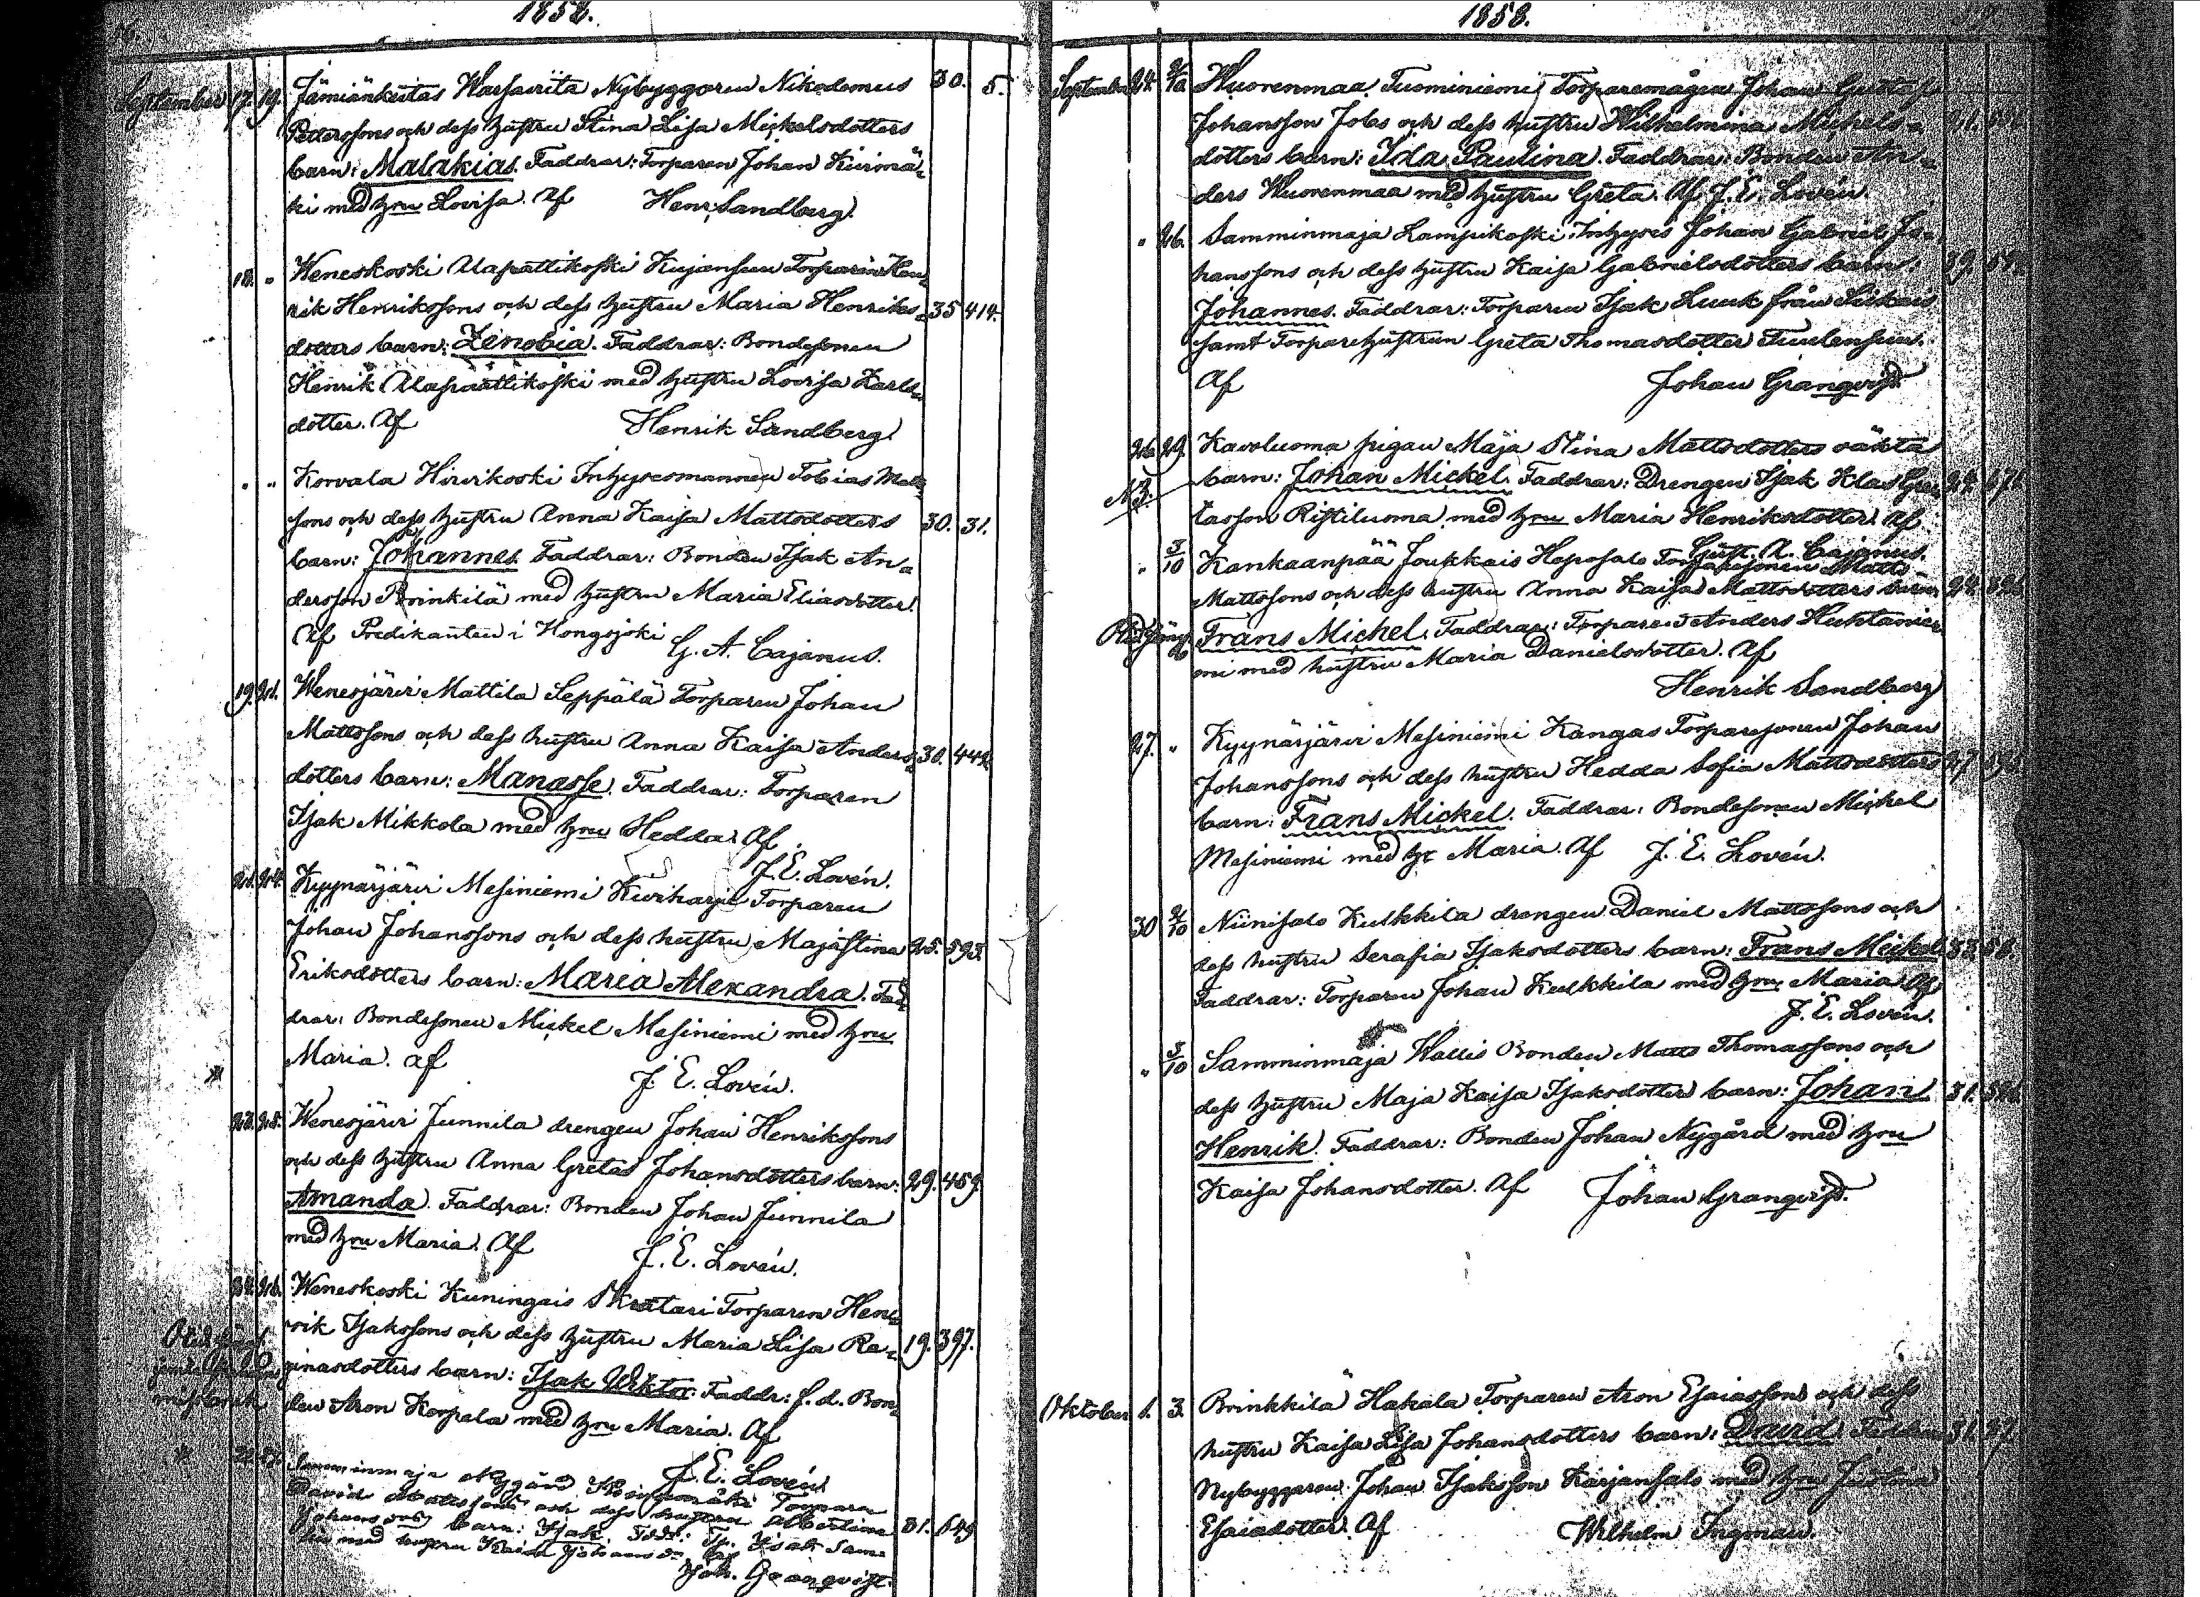 1858.
September 17. 19. Jämiänkeitas Warsavirta Nybyggaren Nikodemus 30. 5.
Pettersons och dess hustru Stina Lisa Mickelsdotters
barn: Malakias. Faddrar: Torparen Johan Kiirinä-
ki med hru Lovisa. Af Henr. Sandberg.
18. " Weneskoski Alapättikoski Kujansuu Torparen Hen-
rik Henrikssons och dess hustru Maria Henriks- 35 414.
dotters barn: Zenobia. Faddrar: Bondesonen
Henrik Alapäättikoski med hustru Lovisa Karls-
dotter. Af Henrik Sandberg.
" " Korvala Hirvikoski Inhysesmannen Tobias Matts-
sons och dess hustru Anna Kaisa Mattsdotters 30. 31.
barn: Johannes. Faddrar: Bonden Isak An-
dersson Brinkilä med hustru Maria Eliasdotter.
Af Predikanten i Hongojoki G. A. Cajanus.
19. 21. Wenesjärvi Mattila Seppälä Torparen Johan
Mattssons och dess hustru Anna Kaisa Anders- 30. 442.
dotters barn: Manasse. Faddrar: Torparen
Isak Mikkola med hru Hedda. Af
J. E. Lovén.
21. 24. Kyynärjärvi Mesiniemi Kiviharju Torparen
Johan Johanssons och dess hustru Maja Stina 25. 593.
Eriksdotters barn: Maria Alexandra. Fad-
drar: Bondesonen Mickel Mesiniemi med hru
Maria. Af J. E. Lovén.
23. 25. Wenesjärvi Junnila drengen Johan Henrikssons
och dess hustru Anna Gretas Johansdotters barn: 29. 459.
Amanda. Faddrar: Bonden Johan Junnila
med hru Maria. Af J. E. Lovén.
24. 26. Weneskoski Kuningais Skratari Torparen Hen-
rik Isakssons och dess hustru Maria Lisa Re- 19. 397.
ginasdotters barn: Isak Wiktor. Faddr: f. d. Bon-
den Aron Korpela med hru Maria. Af
J. E. Lovén
Samminmaja Nygård Torparen
David Mattssons och dess hustru Albertina 31. 649
Johansdors barn: Isak. Fadd: Tp. Isak Sam-
med hustru Kaisa Johansdr. Af
Joh. Granqvist.
1858.
September 24. 2/10 Wuorenmaa Tuominiemi Torparemågen Johan Gustaf
Johansson Jobs och dess hustru Wilhelmina Mickels-
dotters barn: Ida Paulina. Faddrar: Bonden An-
ders Wuorenmaa med hustru Greta. Af J. E. Lovén.
" 26. Samminmaja Lampikoski Inhyses Johan Gabriel Jo-
hanssons och dess hustru Kaisa Gabrielsdotters barn:
Johannes. Faddrar: Torparen Isak Luuk från Siikais
samt Torparehustrun Greta Thomasdotter Tuulensuu.
Af Johan Granqvist.
26. 29. Karvluoma pigan Maja Stina Mattsdotters oäkta
barn: Johan Mickel. Faddrar: Drengen Isak Klas Gus-
tafsson Ristiluoma med hru Maria Henriksdotter. Af
Gust. A. Cajanus.
" 3/10 Kankaanpää Joukkais Heposalo Torparesonen Matts
Mattssons och dess hustru Anna Kaisa Mattsdotters barn
Frans Mickel. Faddrar: Torparen Anders Huhtanie-
mi med hustru Maria Danielsdotter. Af
Henrik Sandberg
27. " Kyynärjärvi Mesiniemi Kangas Torparesonen Johan
Johanssons och dess hustru Hedda Sofia Mattsdotters
barn: Frans Mickel. Faddrar: Bondesonen Mickel
Mesiniemi med hr Maria. Af J. E. Lovén.
30 2/10 Niinisalo Kulkkila drengen Daniel Mattssons och
dess hustru Serafia Isaksdotters barn: Frans Mickel
Faddrar: Torparen Johan Kulkkila med hru Maria Af
J. E. Lovén.
" 3/10 Samminmaja Wallis Bonden Matts Thomassons och
dess hustru Maja Kaisa Isaksdotters barn: Johan
Henrik. Faddrar: Bonden Johan Nygård med hru
Kaisa Johansdotter. Af Johan Granqvist.
Oktober 1. 3. Brinkkilä Hakala Torparen Aron Esaiassons och dess
hustru Kaisa Lisa Johansdotters barn: David. Faddrar
Nybyggaren Johan Isaksson Karjansalo med hru
Esaiadotter. Af Wilhelm Ingman.